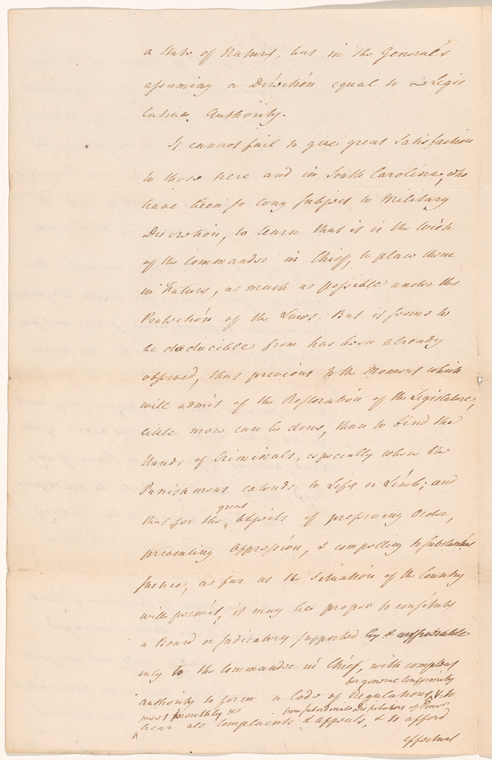 a State of Nature, but in the General's
assuming a Direction equal to Legis
lative Authority.
It cannot fail to give great Satisfaction
to those here and in South Carolina, who
have been so long subject to Military
Discretion, to learn that it is the Wish
of the Commander in Chief, to place them
in Future, as much as possible under the
Protection of the Laws. But it seems to
be deducible from has been already
observed, that previous to the Moment which
will admit of the Restoration of the Legislature,
little more can be done, than to bind the
Hands of Criminals, especially where the
Punishment extends to Life or Limb; and
great
that for the Objects of preserving Order,
preventing Oppression, & compelling to substantial
Justice, as far as the Situation of the Country
will permit, it may be proper to constitute
a Board or Judicatory supported by &
only to the Commander in Chief, with compleat
for general Conformity
authority to form a Code of Regulations, & to
meet monthly &
from subordinate of Power
hear all complaints & appeals, & to afford
effectual